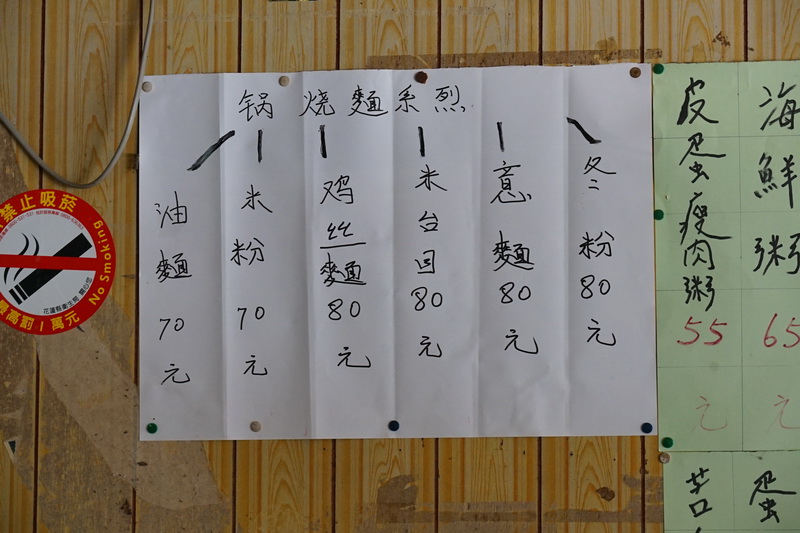 锅烧麵系烈
油麵70元
米粉70元
鸡丝麵80元
米台目80元
意麵80元
冬粉80元
皮蛋瘦肉粥
55元
海鮮粥
65元
苦
蛋
禁止吸菸
No Smoking
最高罰1萬元